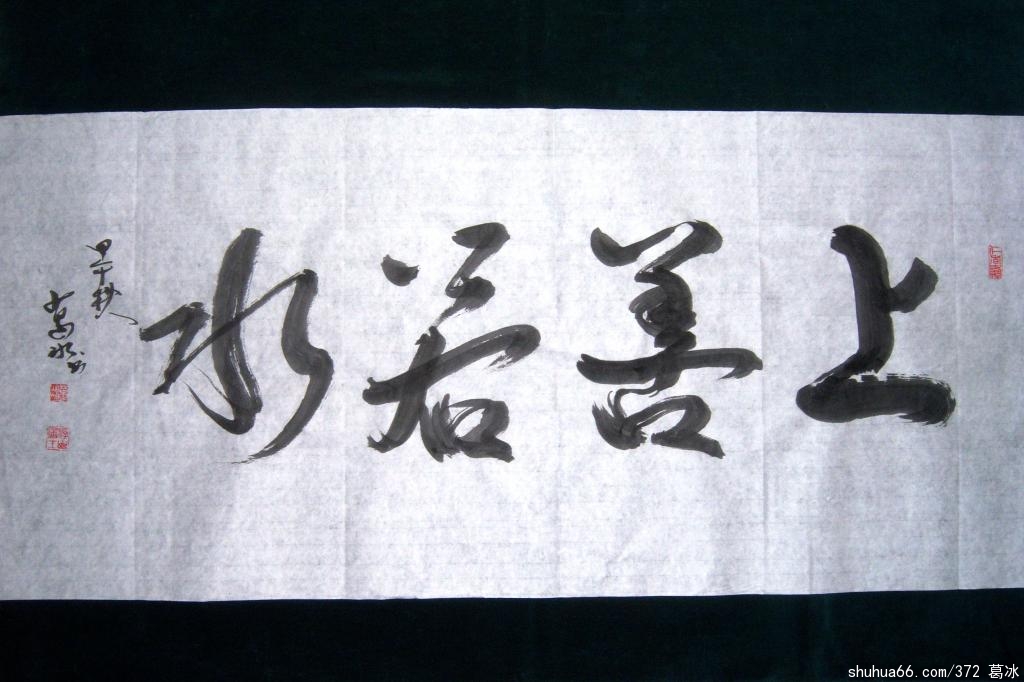 上善若水
葛冰
shuhua66.com/372 葛冰